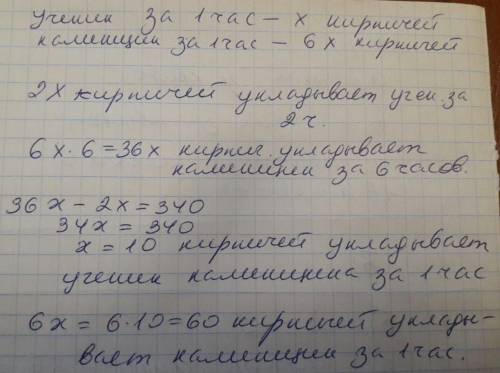 ученик за 1 час – x кирпичей
каменщик за 1 час – 6x кирпичей
2x кирпичей укладывает учен. за
2 ч.
6x · 6 = 36x кирпич. укладывает
каменщик за 6 часов.
36x – 2x = 340
34x = 340
x = 10 кирпичей укладывает
ученик каменщика за 1 час
6x = 6·10 = 60 кирпичей уклады-
вает каменщик за 1 час.